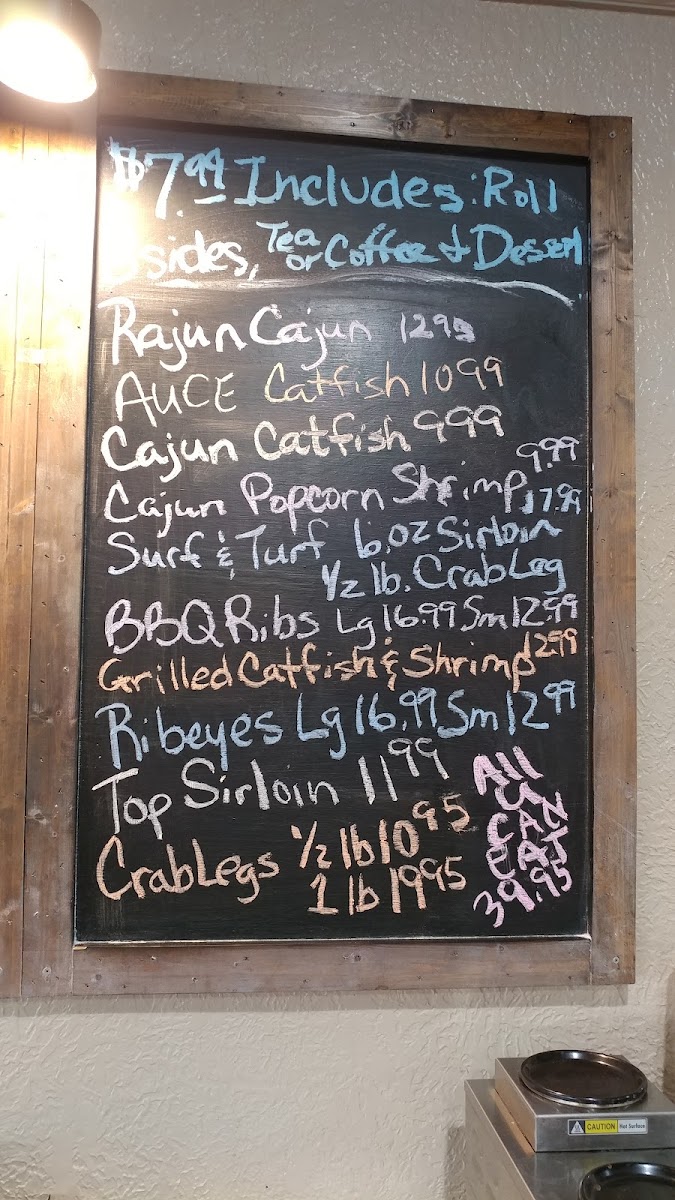 $7.99 Includes: Roll
sides, Tea or Coffee & Dessert
Rajun Cajun 1295
AUCE Catfish 1099
Cajun Catfish 999
Cajun Popcorn Shrimp 9.99
Surf & Turf 6.oz Sirloin 17.99
1/2 lb. Crab Leg
BBQ Ribs Lg 16.99 Sm 12.99
Grilled Catfish & Shrimp 12.99
Ribeyes Lg 16.99 Sm 12 99
Top Sirloin 11 99
Crab Legs 1/2 lb 10 95
1 lb 1995
All
U
CAN
EAT
39.95
CAUTION Hot Surface